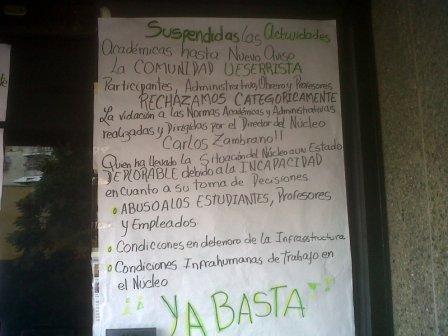 Suspendidas las Actividades
Académicas hasta Nuevo Aviso
La COMUNIDAD UESERRISTA
Participantes, Administrativo, Obrero y Profesores
RECHAZAMOS CATEGORICAMENTE
La violación a las Normas Académicas y Administrativas
realizadas y Dirigidas por el Director del Núcleo
Carlos Zambrano!!
Quien ha llevado la Situación del Núcleo a un Estado
DEPLORABLE debido a la INCAPACIDAD
en cuanto a su toma de Decisiones
ABUSO A LOS ESTUDIANTES, Profesores
y Empleados
Condiciones en deterioro de la Infraestructura
Condiciones Infrahumanas de Trabajo en
el Núcleo
¡¡YA BASTA!!